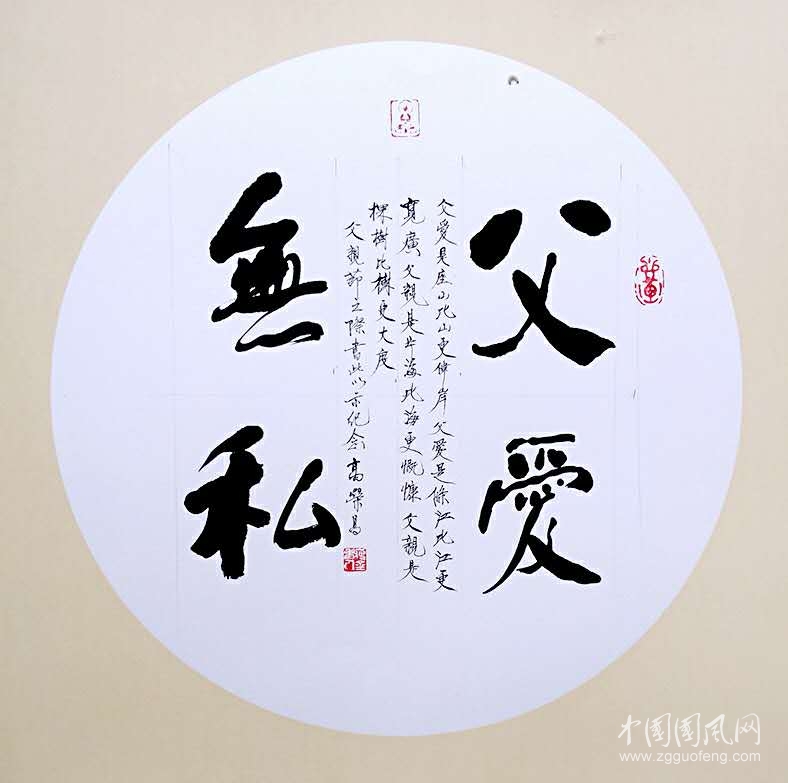 父愛
無私
父愛是座山比山更偉岸父愛是條江比江更
寬廣父親是片海比海更慨慷父親是
棵樹比樹更大度
父親節之際書此以示紀念高榮昌
中国国风网
www.zgguofeng.com